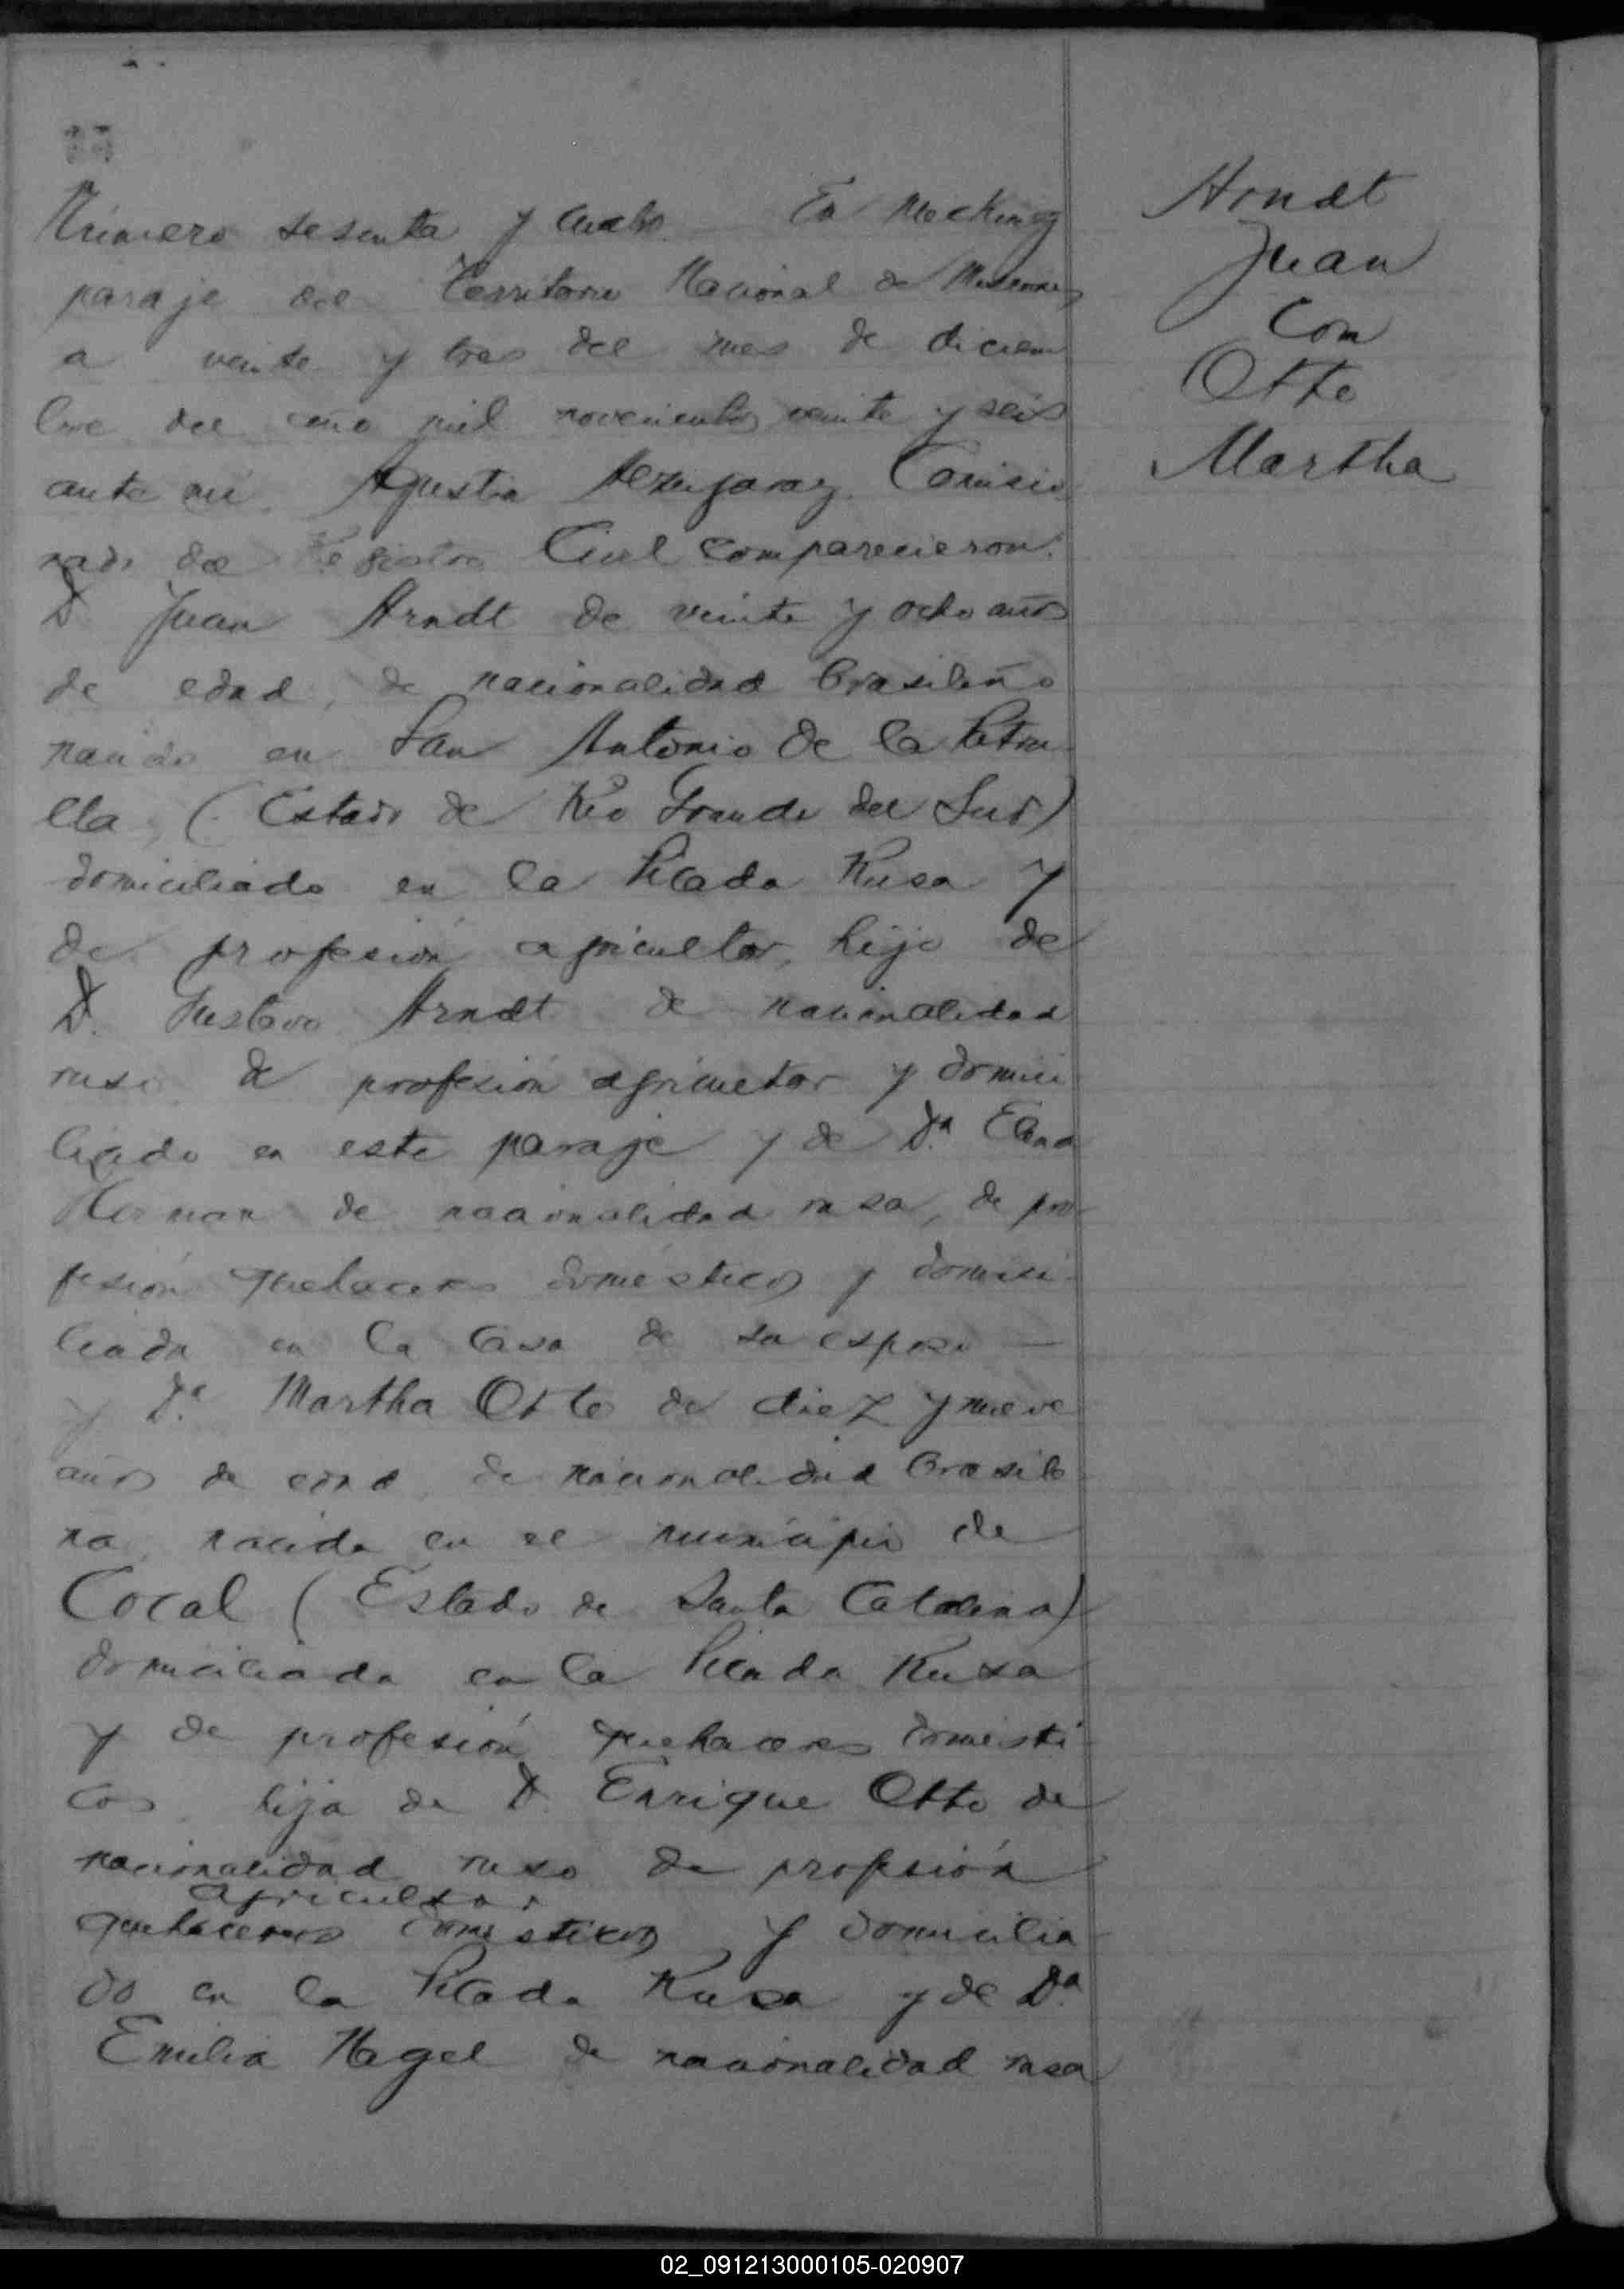 Número sesenta y cuatro. En Mecking
paraje del Territorio Nacional de Misiones
a veinte y tres del mes de diciem
bre del año mil novecientos veinte y seis
ante mi Agustin Comisio
nado del Registro Civil comparecieron:
D. Juan Arndt de veinte y ocho años
de edad, de nacionalidad brasileño
nacido en San Antonio de la Patru
lla, (Estado de Rio Grande del Sud)
domiciliado en la Picada Rusa y
de profesión agricultor, hijo de
D. Gustavo Arndt de nacionalidad
ruso de profesión agricultor y domici
liado en este paraje y de Da.
de nacionalidad rusa, de pro
fesión quehaceres domésticos y domici
liada en la casa de su esposo —
y Da. Martha Otto de diez y nueve
años de edad de nacionalidad brasile
na, nacida en el municipio de
Cocal (Estado de Santa Catalina)
domiciliada en la Picada Rusa
y de profesión quehaceres domésti
cos, hija de D. Enrique Otto de
nacionalidad ruso de profesión
agricultor
quehaceres domesticos y domicilia
do en la Picada Rusa y de Da.
Emilia Nagel de nacionalidad rusa
Arndt
Juan
Con
Otto
Martha
02_091213000105-020907